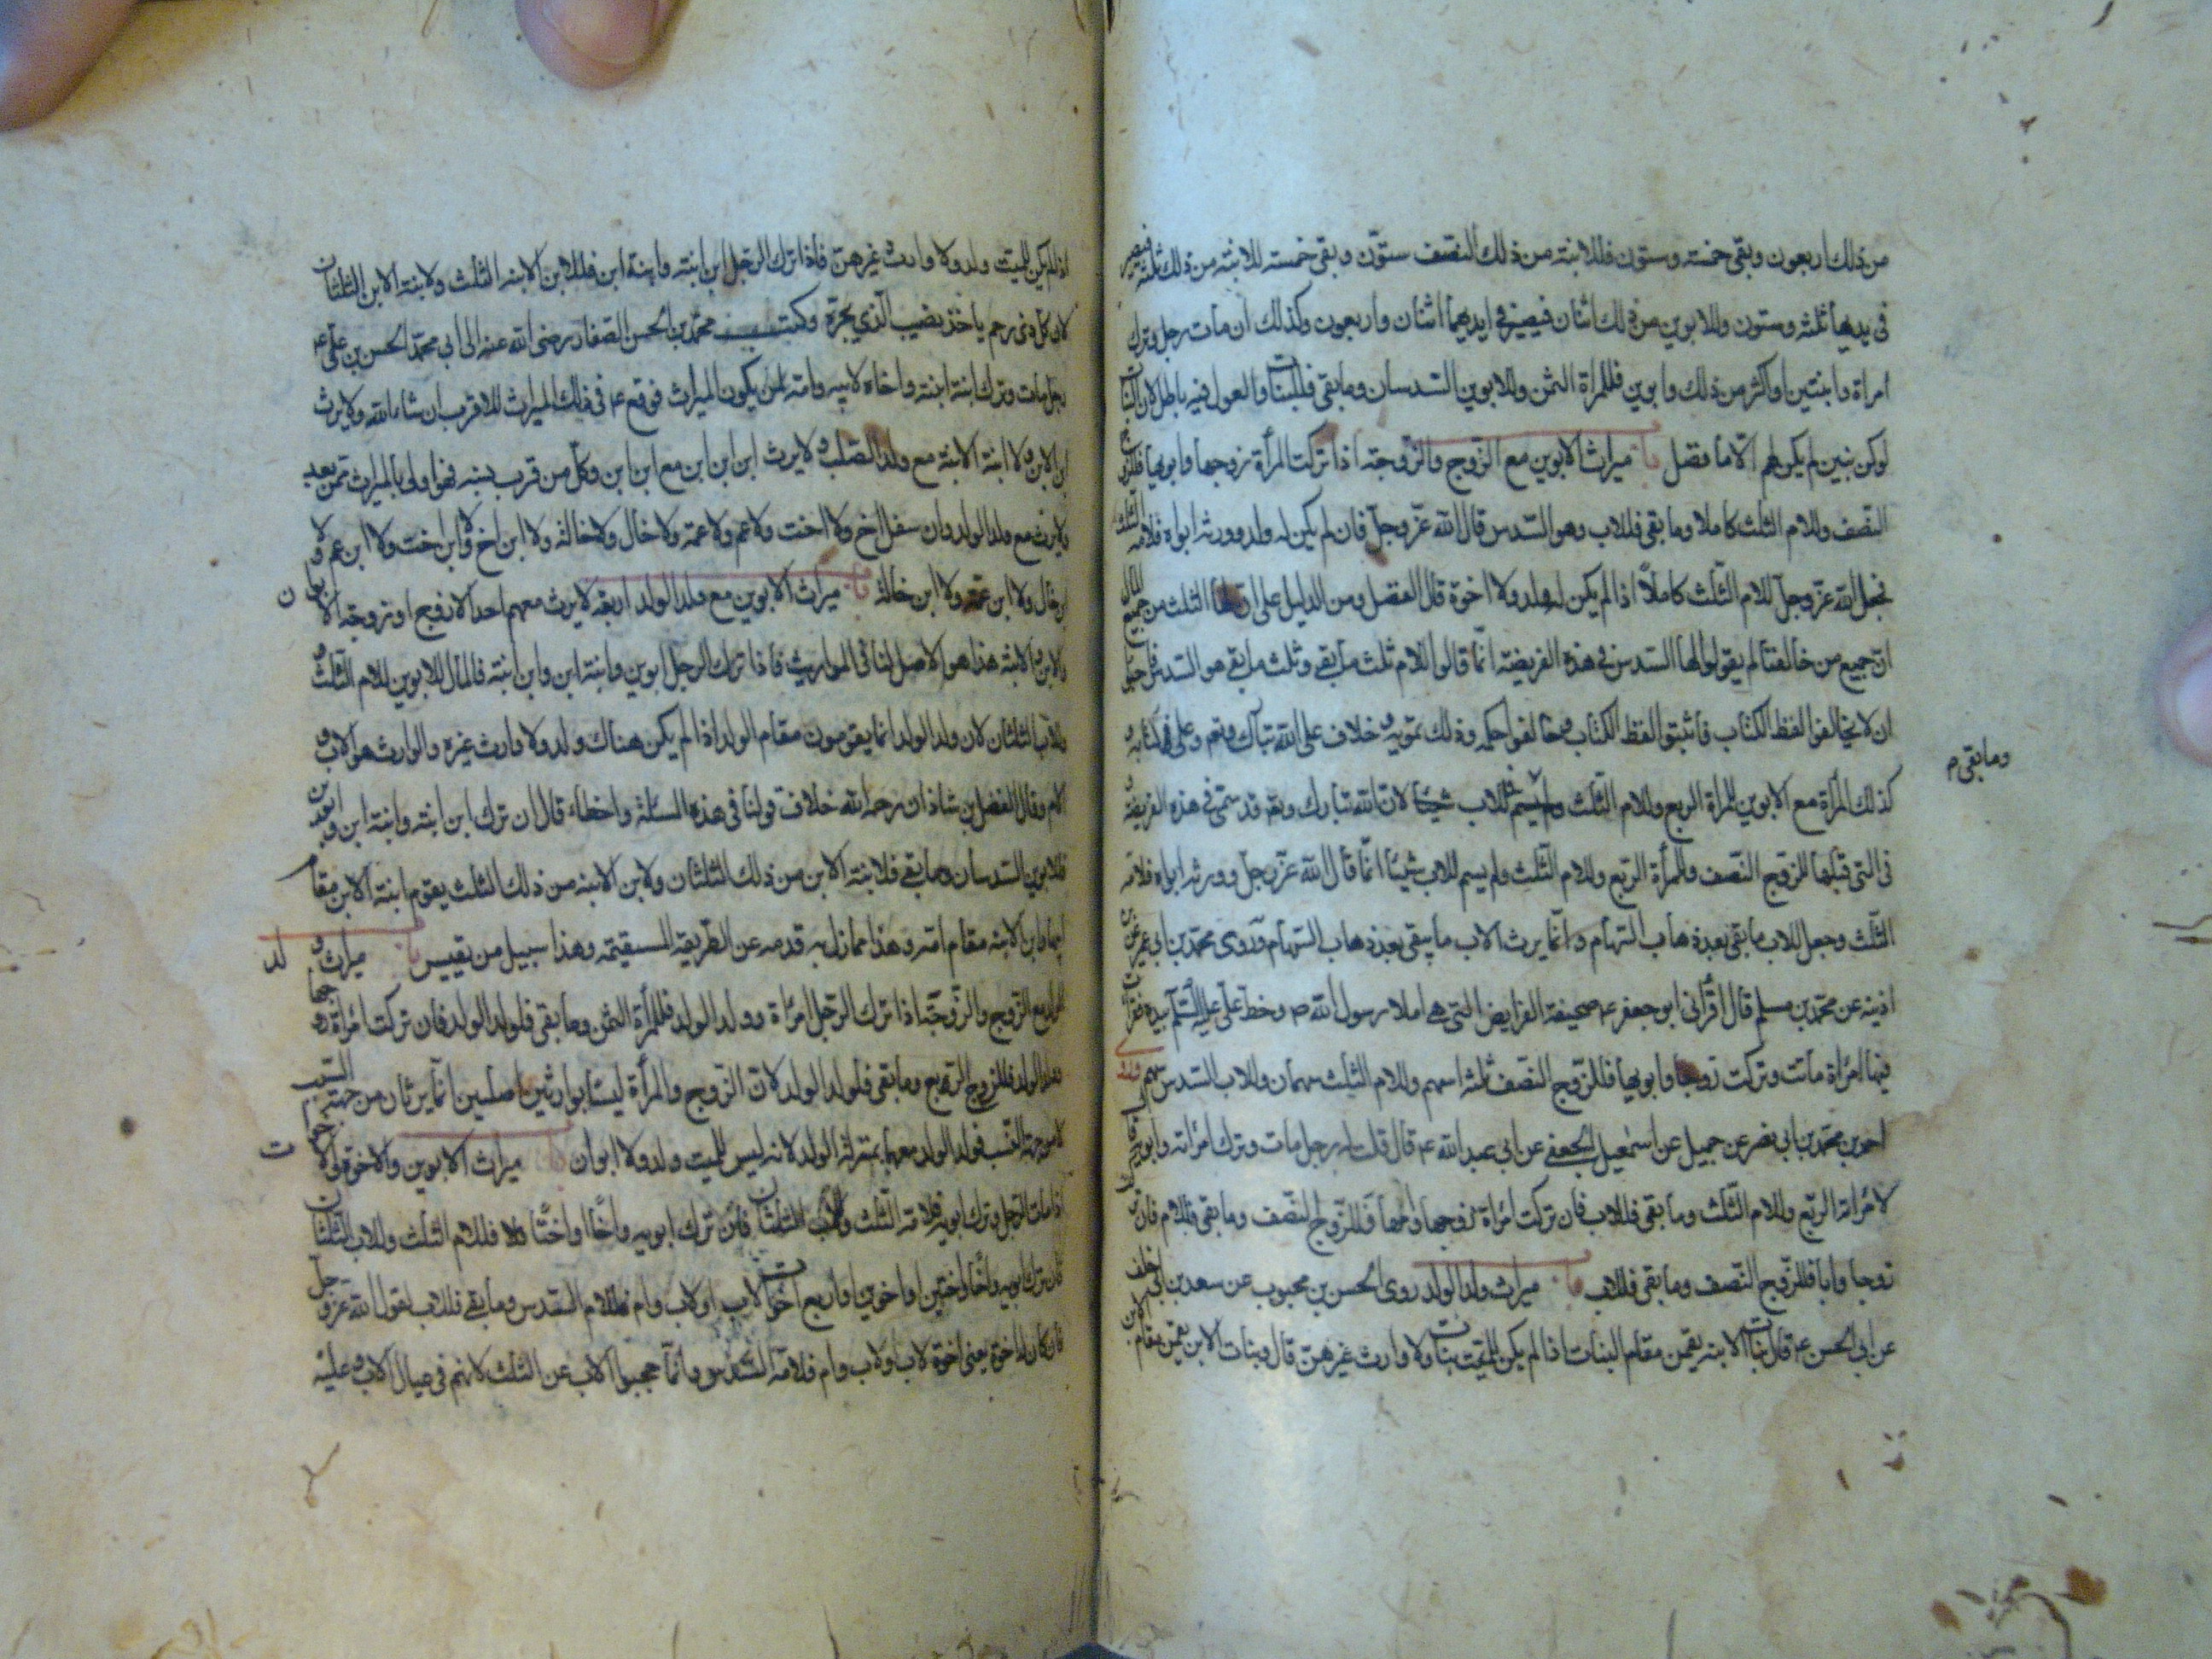 من ذلك اربعون وبقى خمسة وستون فللابنة من ذلك النصف ستون وبقى خمسة للابنة من ذلك ثلثة فيصير
فى يديها ثلثة وستون وللابوين من ذلك اثنان فيصير فى ايديهما اثنان واربعون وكذلك ان مات رجل وترك
امراة وابنتين او اكثر من ذلك وابوين فللمراة الثمن وللابوين السدسان وما بقى فللبنات والعول فيه باطل لان البنات
لو كن بنين لم يكن لهم الا ما فضل باب ميراث الابوين مع الزوج والزوجة اذا تركت المرأة زوجها وابويها فللزوج
النصف وللام الثلث كاملا وما بقى فللاب وهو السدس قال الله عز وجل فان لم يكن له ولد وورثه ابواه فلامه الثلث
فجعل الله عز وجل للام الثلث كاملا اذا لم يكن له ولد ولا اخوة قال الفضل ومن الدليل على ان لها الثلث من جميع المال
ان جميع من خالفنا لم يقولوا لها السدس فى هذه الفريضة انما قالوا للام ثلث ما بقى وثلث ما بقى هو السدس فاحبوا
ان لا يخالفوا لفظ الكتاب فاثبتوا لفظ الكتاب وخالفوا حكمه وذلك تمويه وخلاف على الله تبارك وتعالى وعلى كتابه و
كذلك المرأة مع الابوين للمرأة الربع وللام الثلث ولم يسم للاب شيئا لان الله تبارك وتعالى قد سمى فى هذه الفريضة و
وما بقى م
فى التى قبلها للزوج النصف وللمرأة الربع وللام الثلث ولم يسم للاب شيئا انما قال الله عز وجل وورثه ابواه فلامه
الثلث وجعل للاب ما بقى بعد ذهاب السهام وانما يرث الاب ما يبقى بعد ذهاب السهام وروى محمد بن ابى عمير عن ابن
اذينة عن محمد بن مسلم قال اقرأنى ابو جعفر ع صحيفة الفرايض التى هى املاء رسول الله ص وخط على عليه السلم بيده فقرأت
فيها امرأة ماتت وتركت زوجها وابويها فللزوج النصف ثلثة اسهم وللام الثلث سهمان وللاب السدس سهم وروى
احمد بن محمد بن ابى نصر عن جميل عن اسمعيل الجعفى عن ابى عبد الله ع قال قلت له رجل مات وترك امرأته وابويه قال
لامرأته الربع وللام الثلث وما بقى فللاب فان تركت امرأة زوجها وامها فللزوج النصف وما بقى فللام فان تركت
زوجا وابا فللزوج النصف وما بقى فللاب باب ميراث ولد الولد روى الحسن بن محبوب عن سعد بن ابى خلف
عن ابى الحسن ع قال بنات الابنة يقمن مقام البنات اذا لم يكن للميت بنات ولا وارث غيرهن قال وبنات الابن يقمن مقام الابن
اذا لم يكن للميت ولد ولا وارث غيرهن فاذا ترك الرجل ابن ابنة وابنة ابن فللابن الابنة الثلث ولابنة الابن الثلثان
لان كل ذى رحم ياخذ نصيب الذى يجره وكتب محمد بن الحسن الصفار رضى الله عنه الى ابى محمد الحسن بن على ع
رجل مات وترك ابنة ابنته واخاه لابيه وامه لمن يكون الميراث فوقع ع فى ذلك الميراث للاقرب ان شاء الله ولا يرث
ابن الابن ولا ابنة الابنة مع ولد الصلب ولا يرث ابن ابن ابن مع ابن ابن وكل من قرب نسبه فهو اولى بالميراث ممن بعد
ولا يرث مع ولد الولد وان سفل اخ ولا اخت ولا عم ولا عمة ولا خال ولا خالة ولا ابن اخ ولا ابن اخت ولا ابن عم ولا
ابن خال ولا ابن عمة ولا ابن خالة باب ميراث الابوين مع ولد الولد اربعة لا يرث معهم احد الا زوج او زوجة الابوان
والابن والابنة هذا هو الاصل لنا فى المواريث فاذا ترك الرجل ابوين وابنة ابن وابن ابنة فالمال للابوين للام الثلث و
للاب الثلثان لان ولد الولد انما يقومون مقام الولد اذا لم يكن هناك ولد ولا وارث غيره والوارث هو الاب و
الام وقال الفضل بن شاذان رحمه الله خلاف قولنا فى هذه المسئلة واخطأ قال ان ترك ابن ابنة وابنة ابن وابوين
فللابوين السدسان وما بقى فلابنة الابن من ذلك الثلثان ولابن الابنة من ذلك الثلث يقوم ابنة الابن مقام
ابيها وابن الابنة مقام امه وهذا مما زل به قدمه عن الطريقة المستقيمة وهذا سبيل من يقيس باب ميراث ولد
الولد مع الزوج والزوجة اذا ترك الرجل امرأة وولد الولد فللمرأة الثمن وما بقى فلولد الولد فان تركت امرأة زوجها
وولد الولد فللزوج الربع وما بقى فلولد الولد لان الزوج والمرأة ليسا بوارثين اصليين انما يرثان من جهة السبب
لا من جهة النسب فولد الولد معهما بمنزلة الولد لانه ليس للميت ولد ولا ابوان باب ميراث الابوين والاخوة والاخوات
اذا مات الرجل وترك ابويه فلامه الثلث وللاب الثلثان فان ترك ابويه واخا او اختا فللام الثلث وللاب الثلثان
فان ترك ابويه واخا واختين او اخوين او اربع اخوات لاب او لاب وام فللام السدس وما بقى فللاب لقول الله عز وجل
فان كان له اخوة يعنى اخوة لاب او لاب وام فلامه السدس وانما حجبوا الام عن الثلث لانهم فى عيال الاب وعليه